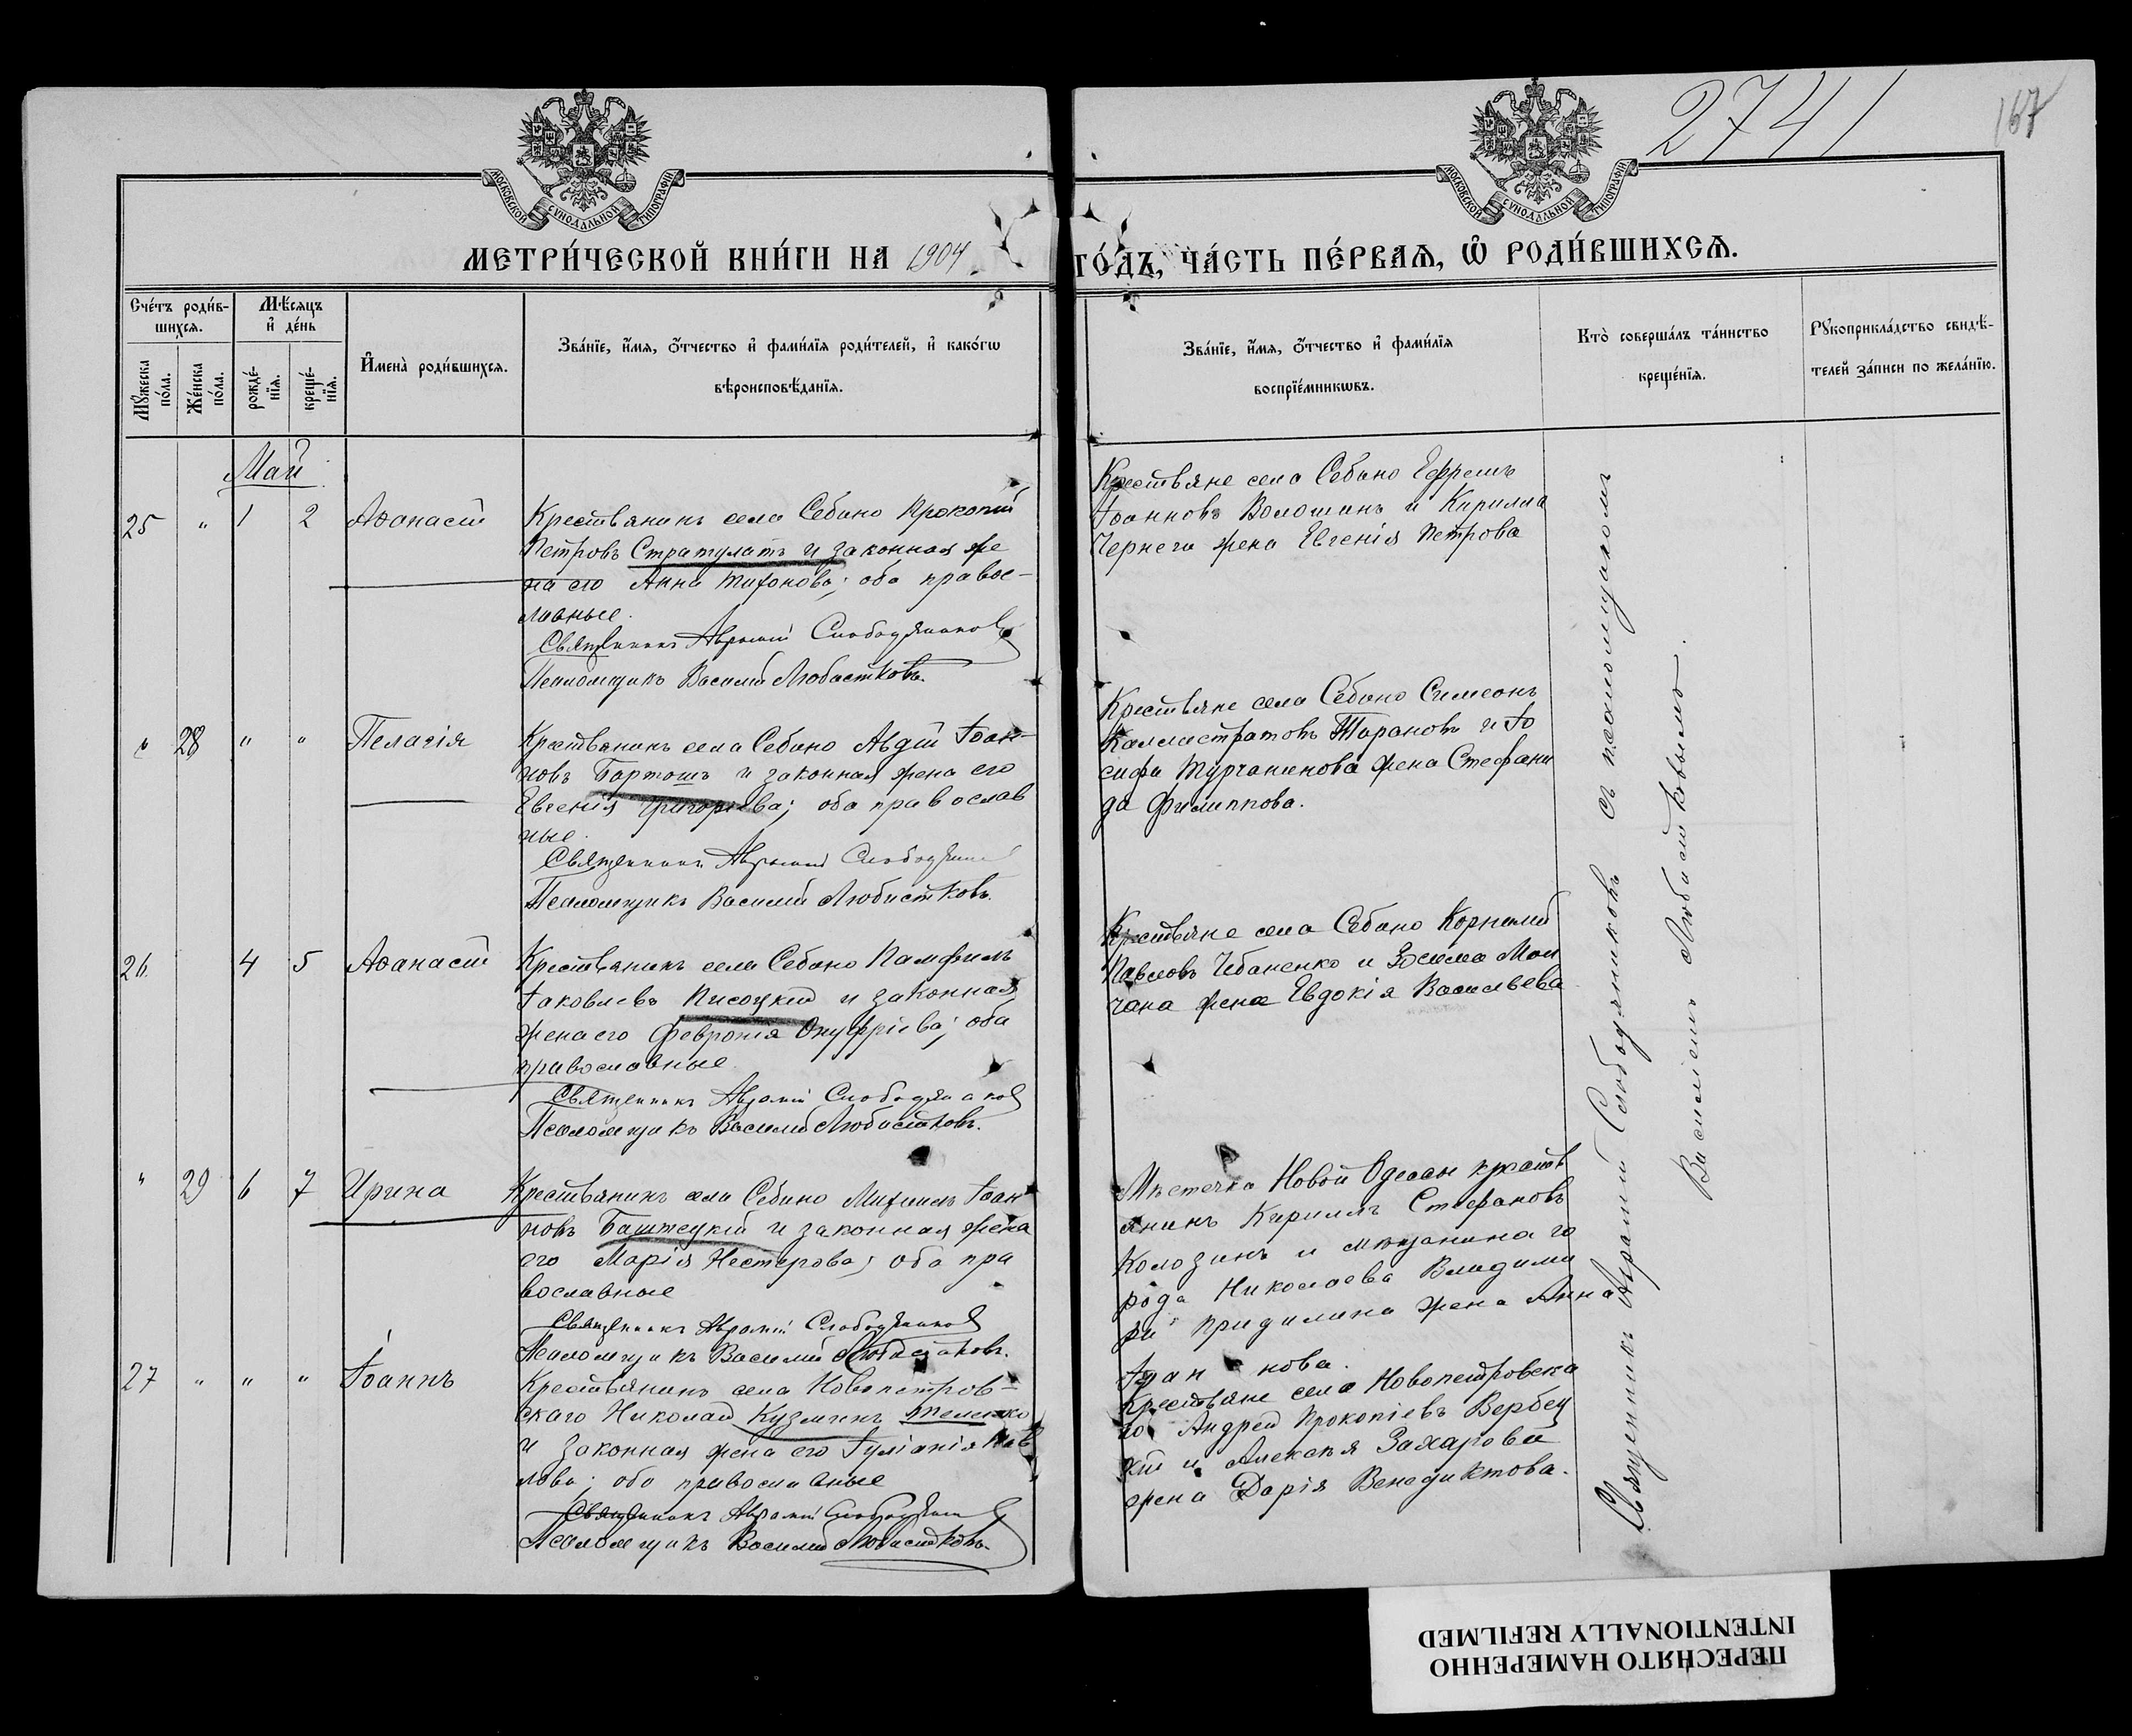 2741
167
МОСКОВСКОЙ СѴНОДАЛЬНОЙ ТИПОГРАФІИ
МОСКОВСКОЙ СѴНОДАЛЬНОЙ ТИПОГРАФІИ
МЕТРИ́ЧЕСКОЙ КНИ́ГИ НА 1904
ГО́ДЪ, ЧА́СТЬ ПЕ́РВАѦ, Ѡ҆ РОДИ́ВШИХСѦ.
Сче́тъ роди́в-
шихсѧ.
Мѣ́сѧцъ
и҆ де́нь
Мꙋ́жеска
по́ла.
Же́нска
по́ла.
рожде́-
нїѧ.
креще́-
нїѧ.
И҆мена̀ роди́вшихсѧ.
Зва́нїе, и҆́мѧ, ѻ҆́тчество и҆ фами́лїѧ роди́телей, и҆ како́гѡ
вѣроисповѣ́данїѧ.
Зва́нїе, и҆́мѧ, ѻ҆́тчество и҆ фами́лїѧ
воспрїе́мникѡвъ.
Кто̀ соверша́лъ та́инство
креще́нїѧ.
Рꙋкоприкла́дство свидѣ́-
телей за́писи по жела́нїю.
Май
25 " 1 2 Аѳанасій
Крестьянинъ села Себино Прокопій
Петровъ Стратулатъ и законная же
на его Анна Тихонова; оба правос-
лавные.
Священникъ Аврамій Слободяников
Псаломщикъ Василій Любистковъ.
Крестьяне села Себино Ефремъ
Іоанновъ Волошинъ и Кирилла
Чернега жена Евгенія Петрова
" 28 " " Пелагія
Крестьянинъ села Себино Авдій Іоан-
новъ Бартошъ и законная жена его
Евгенія Григорьева; оба православ
ные.
Священникъ Аврамій
Псаломщикъ Василій Любистковъ.
Крестьяне села Себино Симеонъ
Каллистратовъ Тарановъ и Іо
сифа Турчанинова жена Стефани
да Филиппова.
26 4 5 Аѳанасій
Крестьянинъ села Себино Памфилъ
Іаковлевъ Писоцкій и законная
жена его Февронія Онуфріева; оба
православные
Священникъ Аврамій Слободяников
Псаломщикъ Василій Любистковъ.
Крестьяне села Себино Корнилій
Павловъ Чебаненко и Зосима Мол
чана жена Евдокія Васильева
" 29 6 7 Ирина
Крестьянинъ села Себино Михаилъ Іоан
новъ Баштецкій и законная жена
его Марія Нестерова; оба пра
вославные
Священникъ Аврамій Слободяников
Псаломщикъ Василій Любистковъ.
Мѣстечка Новой Одессы крестья
янинъ Кириллъ Стефановъ
Колозинъ и мѣщанина го
рода Николаева Владими
ра Придилина жена Анна
Іоаннова.
27 " " " Іоаннъ
Крестьянинъ села Новопетров-
скаго Николай Кузминъ Теленко
и законная жена его Іуліанія Пав
лова; оба православные
Священникъ Аврамій
Псаломщикъ Василій Любистковъ.
Крестьяне села Новопетровска
го Андрей Прокопіевъ Вербец
кій и Алексѣя Захарова
жена Дарія Венедиктова.
Священникъ Аврамій Слободяниковъ съ псаломщикомъ
Василіемъ Любистковымъ.
ПЕРЕСНЯТО НАМЕРЕННО
INTENTIONALLY REFILMED